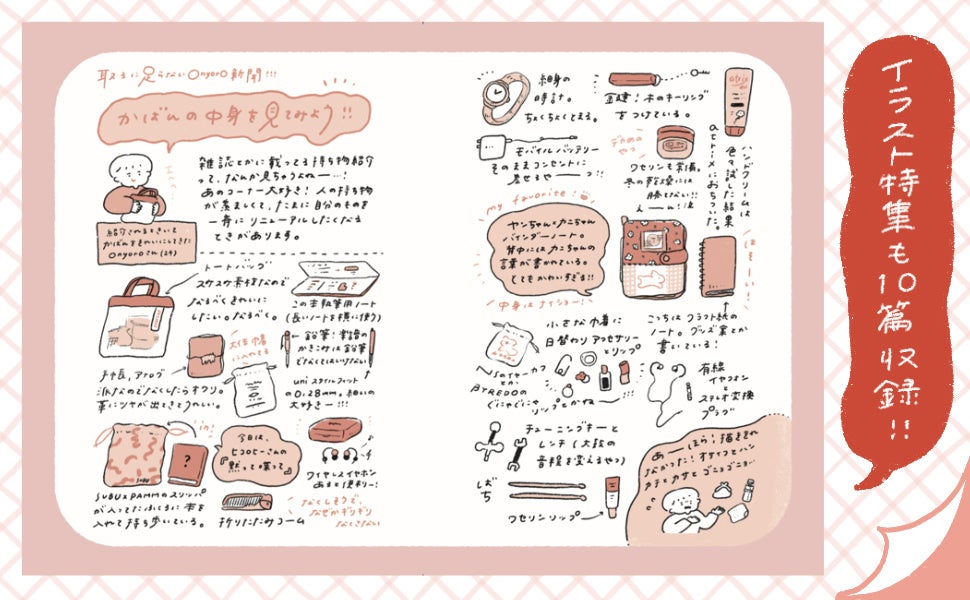 取るに足らないonyoro新聞!!!
かばんの中身を見てみよう!!
雑誌とかに載ってる持ち物紹介
って、なんか見ちゃうよねー…!
あのコーナー大好き! 人の持ち物
が羨ましくて、たまに自分のものを
一斉にリニューアルしたくなる
ときがあります。
紹介されるときいて
かばんをきれいにしてきた
onyoroさん(29)
トートバッグ
スケスケ素材なので
なるべくきれいに
したい。なるべく。
この本執筆用ノート
(長いノートを横に使う)
手帳、アナログ
派なのでなくしたらオワリ。
革にツヤが出てきてうれしい。
大体巾着
に入れてる
鉛筆!楽譜の
かきこみは鉛筆
でなくてはいけない
uni スタイルフィット
の0.28mm。細いの
大好きー!!!
in!
SUBU
?
SUBU×PAMMのスリッパ
が入ってたふくろに本を
入れて持ち歩いている。
今日は、
ヒコロヒーさんの
『黙って喋って』
折りたたみコーム
ワイヤレスイヤホン
あると便利ー!
なくしそうで、
なぜかギリギリ
なくさない
細身の
時計。
ちょくちょくとまる。
金建!木のキーリング
をつけている。
atrix
ハンドクリームは
色々試した結果
atrixにおちついた。
モバイルバッテリー
そのままコンセントに
差せるやーーつ!!
デカめの
やつ
ワセリンも常備。
冬の乾燥には
勝てない!!
my favorite!
ヤンちゃん×カニちゃん
バインダーノート。
背中にはカニちゃんの
言葉が書かれている。
とてもかわいすぎる!!
中身はナイショー!
こっちはクラフト紙の
ノート。グッズ案とか
書いている!
小さな巾着に
日替わりアクセサリー
とリップ
BYREDOの
ぐにゃぐにゃ
リップとかねー!!!
有線
イヤフォン
とステレオ変換
プラグ
チューニングキーと
レンチ(太鼓の
音程を変えるやつ)
ばち
ワセリンリップ
あーーほら!描ききれ
なかった!オサイフとハン
カチとカサとゴニョゴニョ…
イラスト特集も10篇収録!!